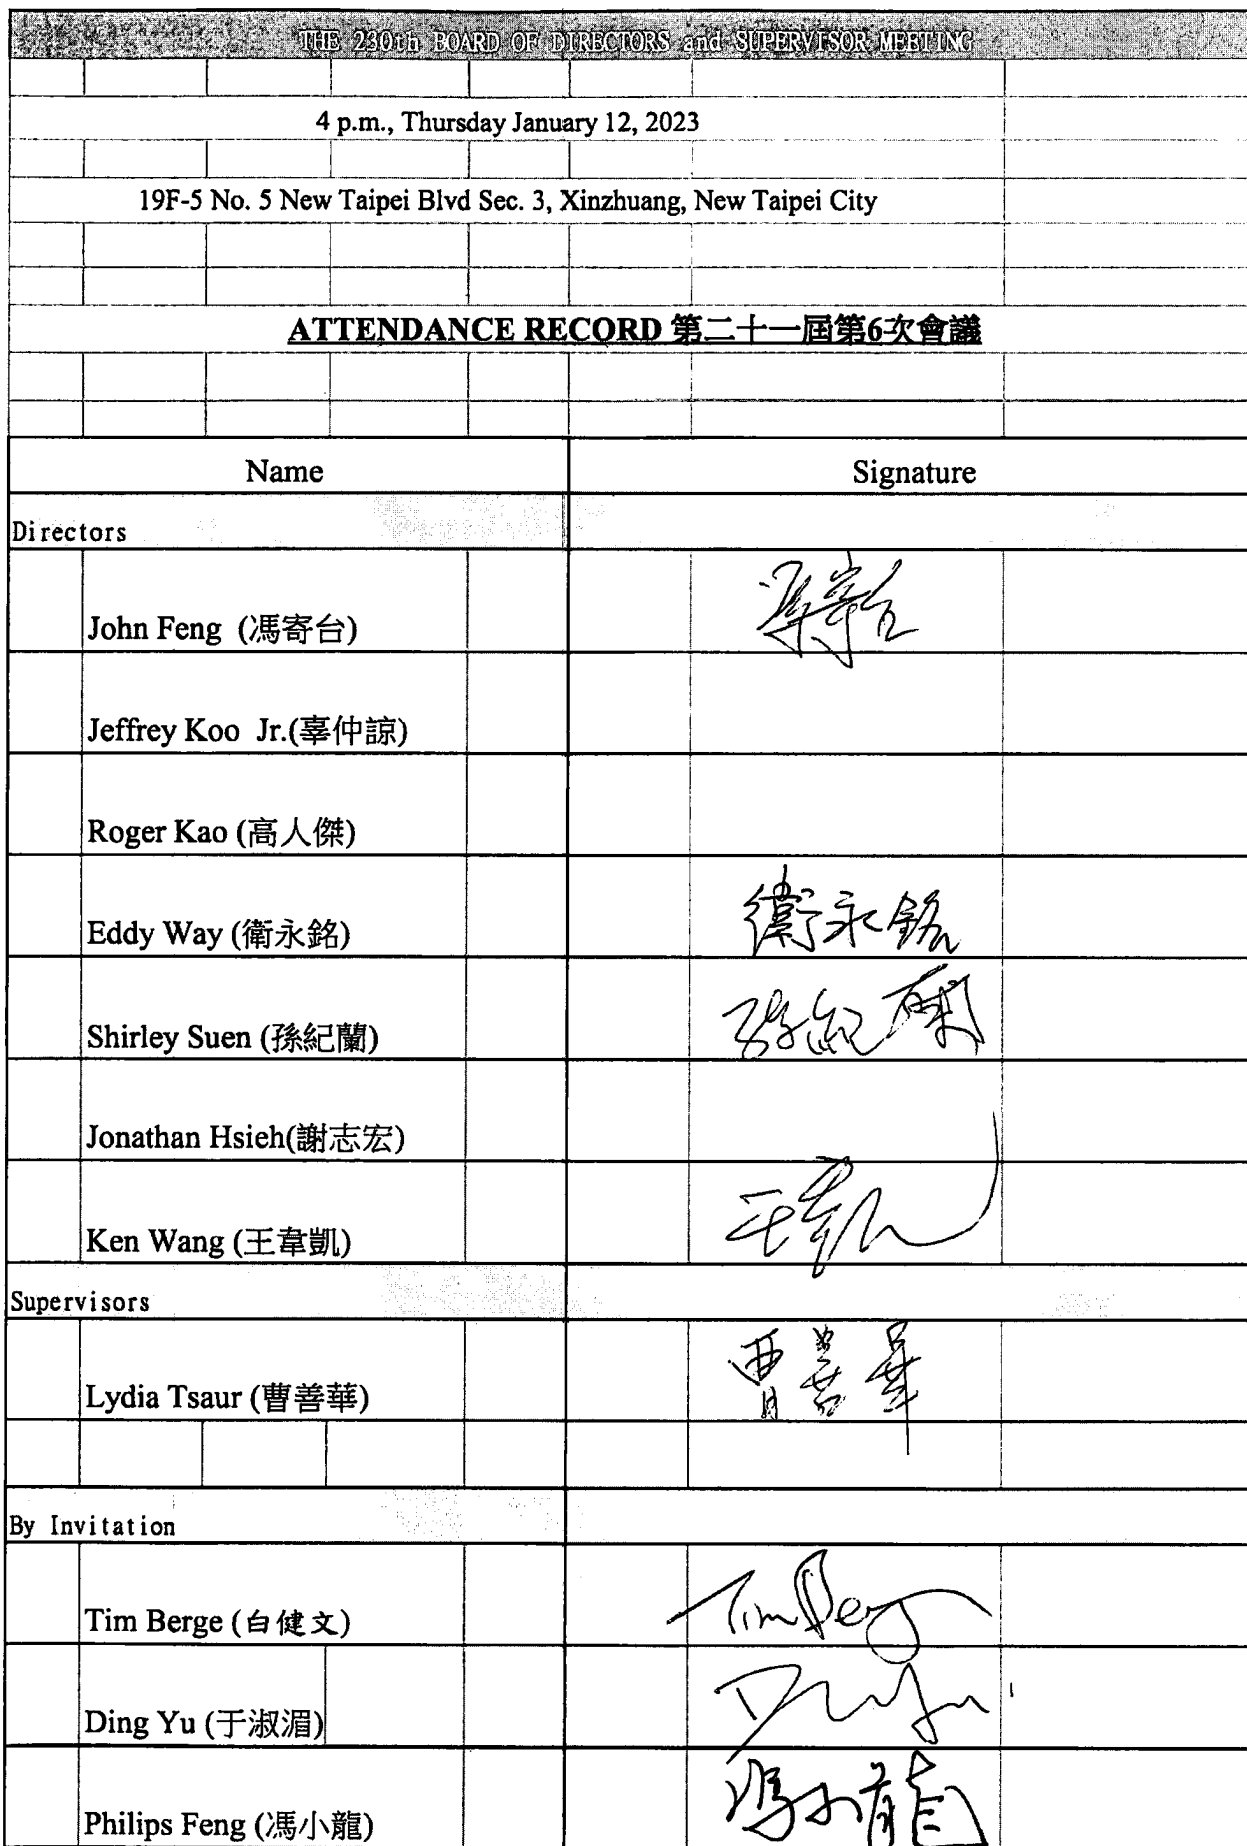 THE 230th BOARD OF DIRECTORS and SUPERVISOR MEETING
4 p.m., Thursday January 12, 2023
19F-5 No. 5 New Taipei Blvd Sec. 3, Xinzhuang, New Taipei City
ATTENDANCE RECORD 第二十一屆第6次會議
Name Signature
Directors
John Feng (馮寄台) 馮寄台
Jeffrey Koo Jr.(辜仲諒)
Roger Kao (高人傑)
Eddy Way (衛永銘) 衛永銘
Shirley Suen (孫紀蘭) 孫紀蘭
Jonathan Hsieh(謝志宏)
Ken Wang (王韋凱) 王韋凱
Supervisors
Lydia Tsaur (曹善華) 曹善華
By Invitation
Tim Berge (白健文) Tim Berge
Ding Yu (于淑湄) Ding Yu
Philips Feng (馮小龍) 馮小龍